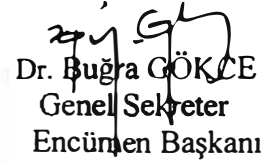 Dr. Buğra GÖKCE
Genel Sekreter
Encümen Başkanı